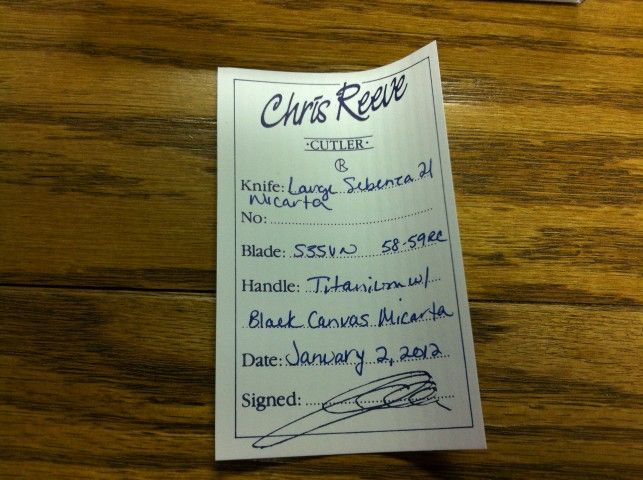 Chris Reeve
·CUTLER·
®
Knife: Large Sebenza 21
Micarta
No:
Blade: S35VN 58-59RC
Handle: Titanium w/
Black Canvas Micarta
Date: January 2, 2012
Signed: